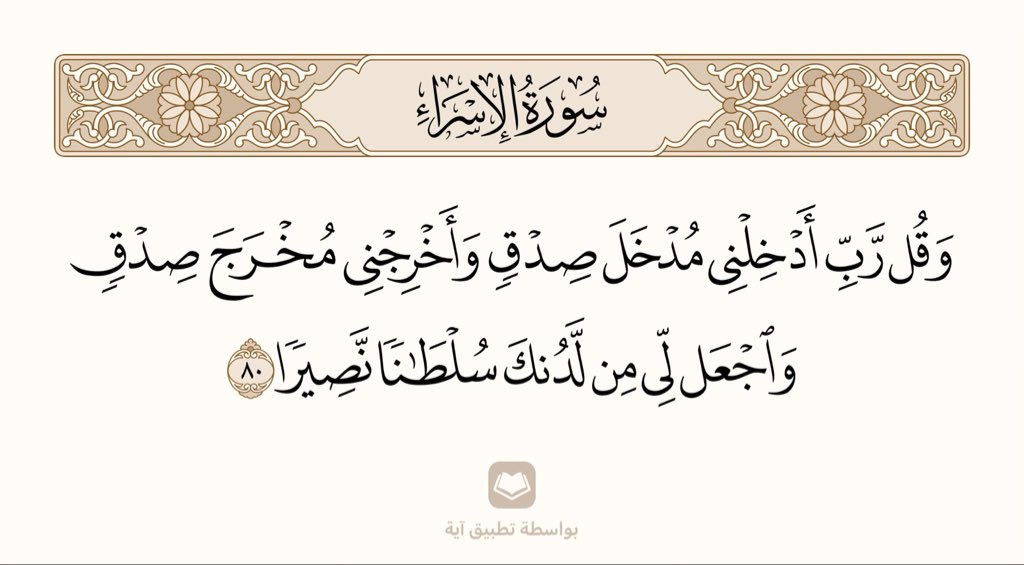 سُورَةُ الإِسْرَاءِ
وَقُل رَّبِّ أَدْخِلْنِى مُدْخَلَ صِدْقٍ وَأَخْرِجْنِى مُخْرَجَ صِدْقٍ
وَٱجْعَل لِّى مِن لَّدُنكَ سُلْطَٰنًا نَّصِيرًا ٨٠
بواسطة تطبيق آية